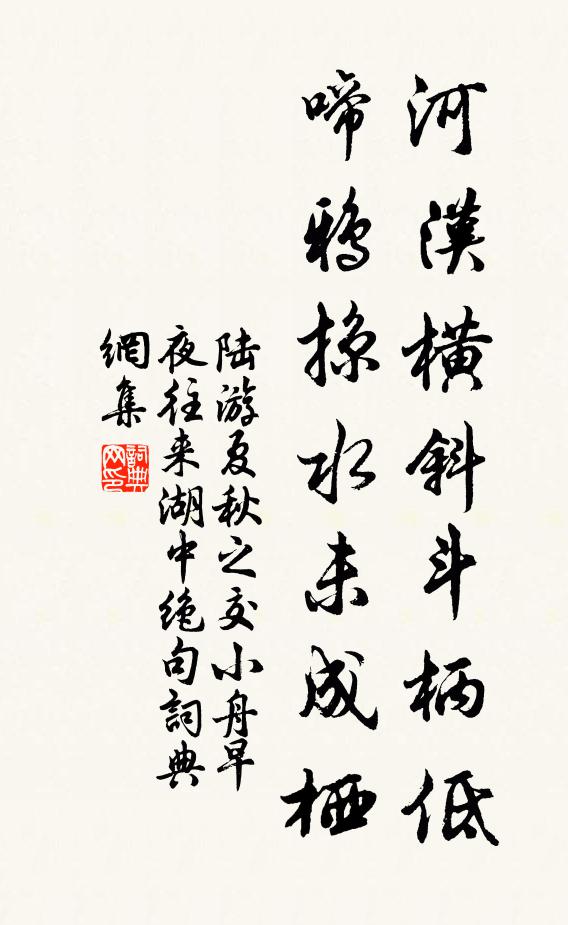 河漢橫斜斗柄低
啼鴉掠水未成栖
陆游夏秋之交小舟早
夜往来湖中绝句詞典
網集
詞典
网印